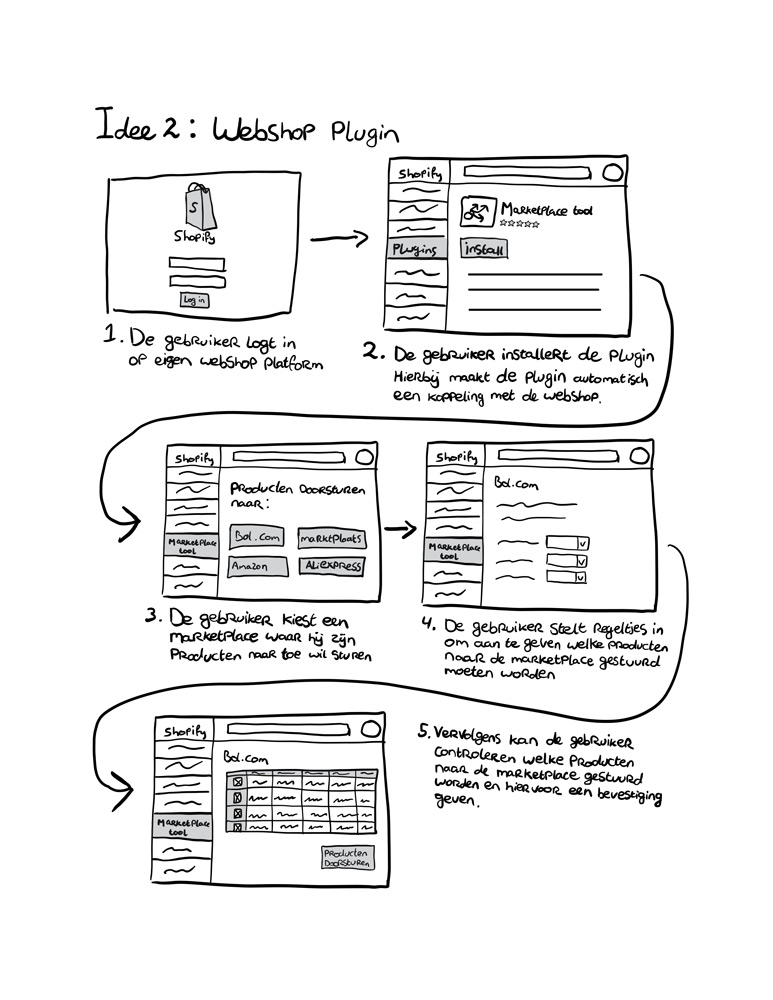 Idee 2: Webshop Plugin
S
Shopify
Log in
1. De gebruiker logt in
op eigen webshop platform
Shopify
Plugins
Marketplace tool
install
2. De gebruiker installert de plugin
Hierbij maakt de plugin automatisch
een koppeling met de webshop.
Shopify
Marketplace
tool
Producten Doorsturen
naar:
Bol.com
marktplaats
Amazon
Aliexpress
3. De gebruiker kiest een
marketplace waar hij zijn
Producten naar toe wil sturen
Shopify
Marketplace
tool
Bol.com
4. De gebruiker stelt regeltjes in
om aan te geven welke producten
naar de marketplace gestuurd
moeten worden
Shopify
Marketplace
tool
Bol.com
Producten
Doorsturen
5. Vervolgens kan de gebruiker
controleren welke producten
naar de marketplace gestuurd
worden en hiervoor een bevestiging
geven.